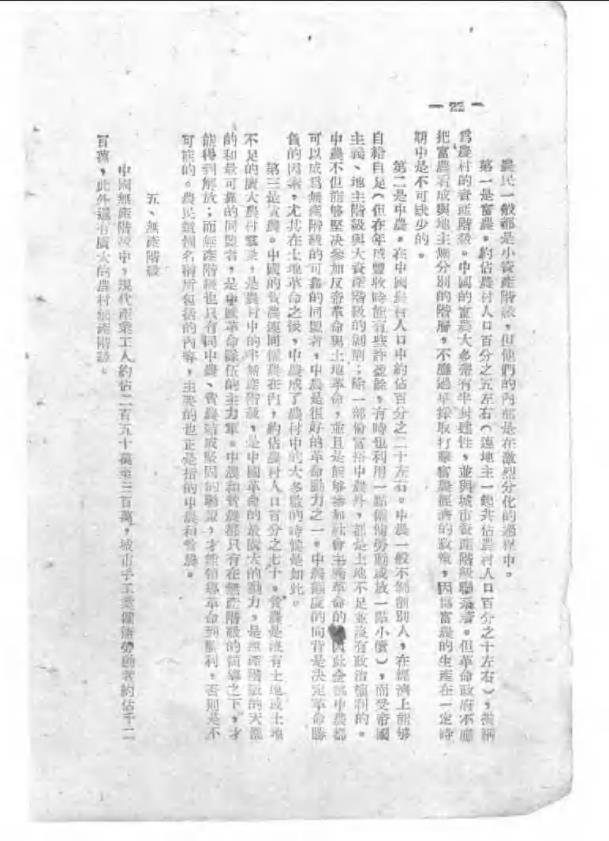 — 22 —
農民一般都是小資產階級，但他們的內部是在激烈分化的過程中。
第一是富農。約佔農村人口百分之五左右（連地主一起共佔農村人口百分之十左右），被稱
爲農村的資產階級。中國的富農大多帶有半封建性，並與城市資產階級聯系着。但革命政府不應
把富農看成與地主無分別的階層，不應過早採取打擊富農經濟的政策，因爲富農的生產在一定時
期中是不可缺少的。
第二是中農。在中國農村人口中約佔百分之二十左右。中農一般不剝削別人，在經濟上能够
自給自足（但在年成豐收時能有些許盈餘，有時也利用一點僱傭勞動或放一點小債），而受帝國
主義、地主階級與大資產階級的剝削；除一部份富裕中農外，都是土地不足並沒有政治權利的。
中農不但能够堅決參加反帝革命與土地革命，並且是能够參加社會主義革命的 因此全部中農都
可以成爲無產階級的可靠的同盟者，中農是很好的革命動力之一。中農態度的向背是決定革命勝
負的因素，尤其在土地革命之後，中農成了農村中的大多數的時候是如此。
第三是貧農。中國的貧農連同僱農在內，約佔農村人口百分之七十。貧農是沒有土地或土地
不足的廣大農村羣衆，是農村中的半無產階級，是中國革命的最廣大的動力，是無產階級的天然
的和最可靠的同盟者，是中國革命隊伍的主力軍。中農和貧農都只有在無產階級的領導之下，才
能得到解放；而無產階級也只有同中農、貧農結成堅固的聯盟，才能領導革命到勝利，否則是不
可能的。農民這個名稱所包括的內容，主要的也正是指的中農和貧農。
五、無產階級
中國無產階級中，現代產業工人約佔二百五十萬至三百萬，城市手工業僱傭勞動者約佔千二
百萬，此外還有廣大的農村無產階級。